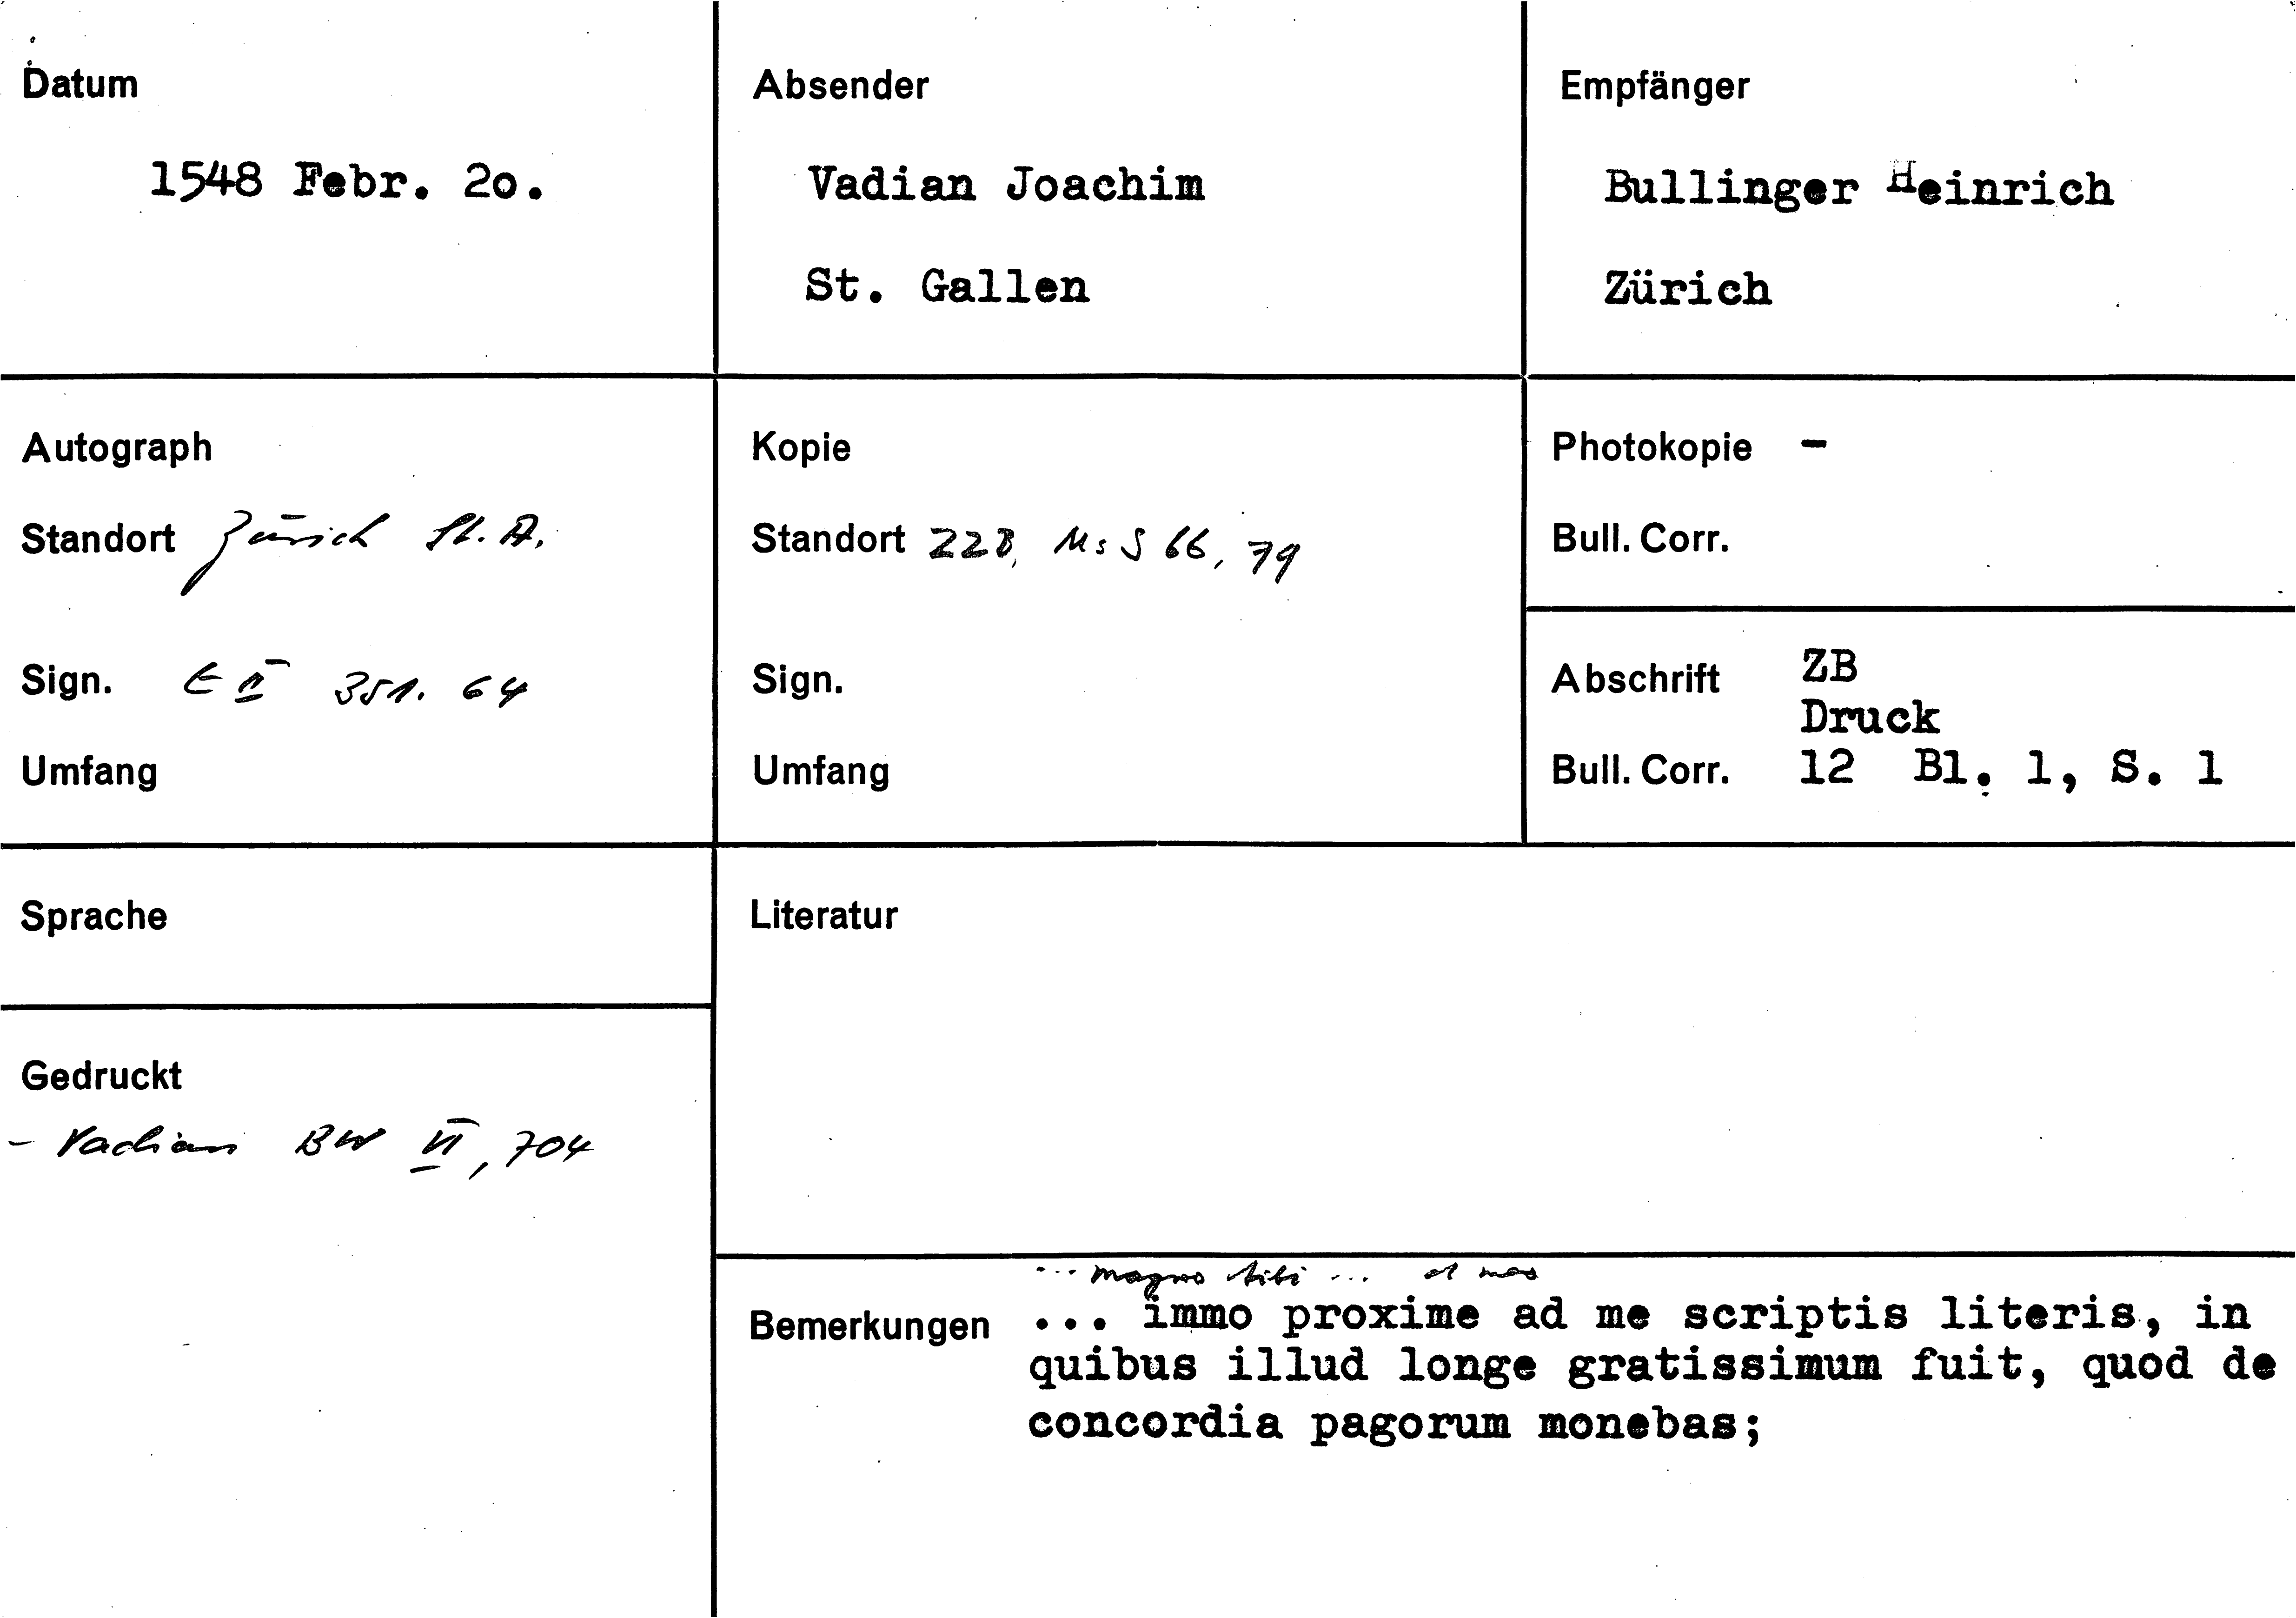 Datum
1548 Febr. 2o.
Absender
Vadian Joachim
St. Gallen
Empfänger
Bullinger Heinrich
Zürich
Autograph
Standort Zürich St. A.
Sign. E II 351. 64
Umfang
Kopie
Standort ZZB, Ms S 66, 79
Sign.
Umfang
Photokopie -
Bull. Corr.
Abschrift ZB
Druck
Bull. Corr. 12 Bl. 1, S. 1
Sprache
Literatur
Gedruckt
- Vadian BW VI, 704
... magno tibi ... et
Bemerkungen ... immo proxime ad me scriptis literis, in
quibus illud longe gratissimum fuit, quod de
concordia pagorum monebas;